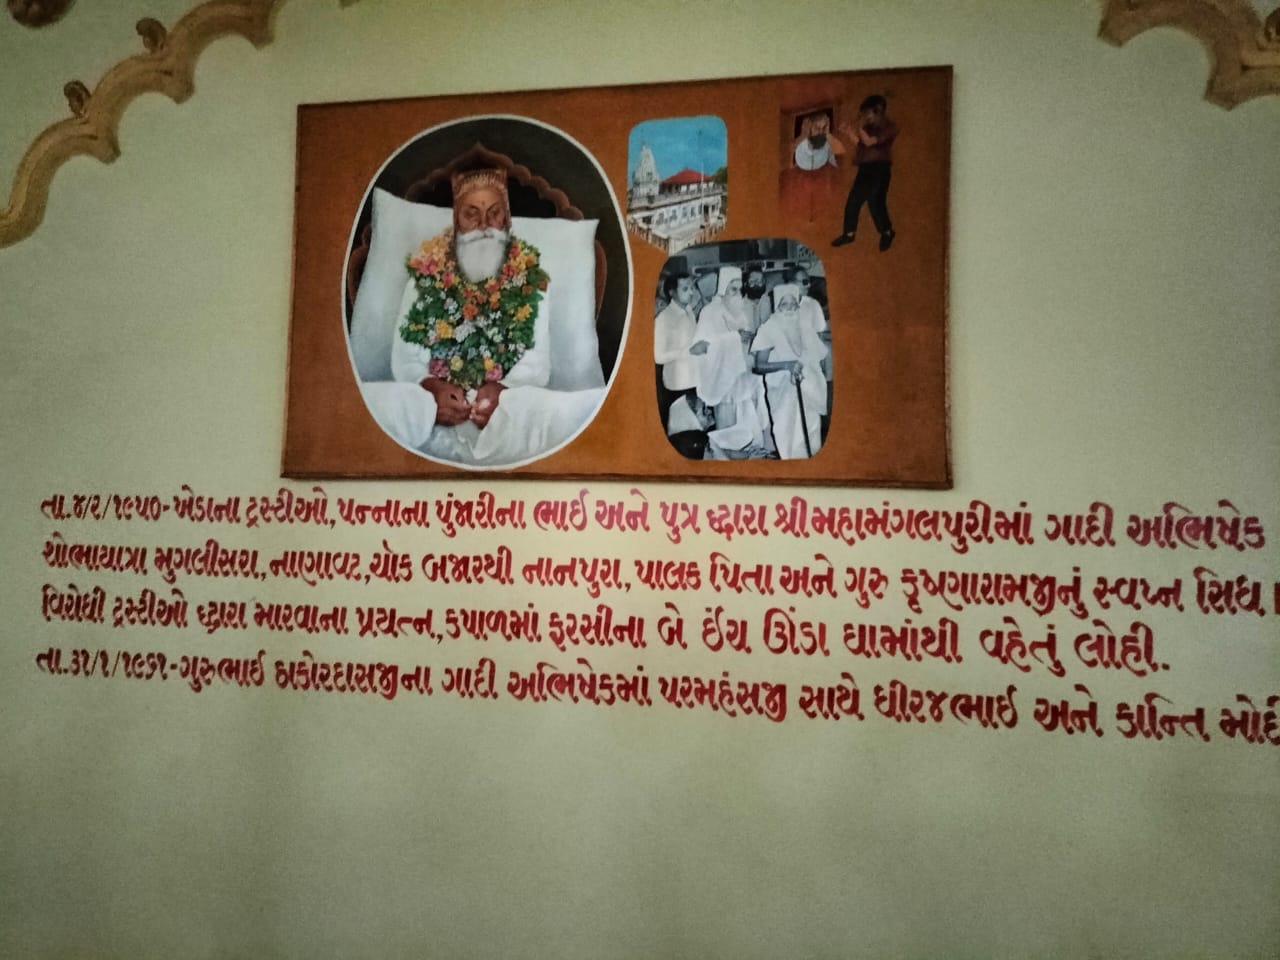 તા.૪/૨/૧૯૫૦-ખેડાના ટ્રસ્ટીઓ,પન્નાના પુંજારીના ભાઈ અને પુત્ર ધ્દારા શ્રીમહામંગલપુરીમાં ગાદી અભિષેક
શોભાયાત્રા મુગલીસરા,નાણાવટ,ચૉક બજારથી નાનપુરા,પાલક પિતા અને ગુરુ કૃષ્ણારામજીનું સ્વપ્ન સિધ્ધ
વિરોધી ટ્રસ્ટીઓ ધ્દારા મારવાના પ્રયત્ન,કપાળમાં ફરસીના બે ઈંચ ઊંડા ઘામાંથી વહેતું લોહી.
તા.૩૧/૧/૧૯૭૧-ગુરુભાઈ ઠાકોરદાસજીના ગાદી અભિષેકમાં પરમહંસજી સાથે ધીરજભાઈ અને કાન્તિ મોદી